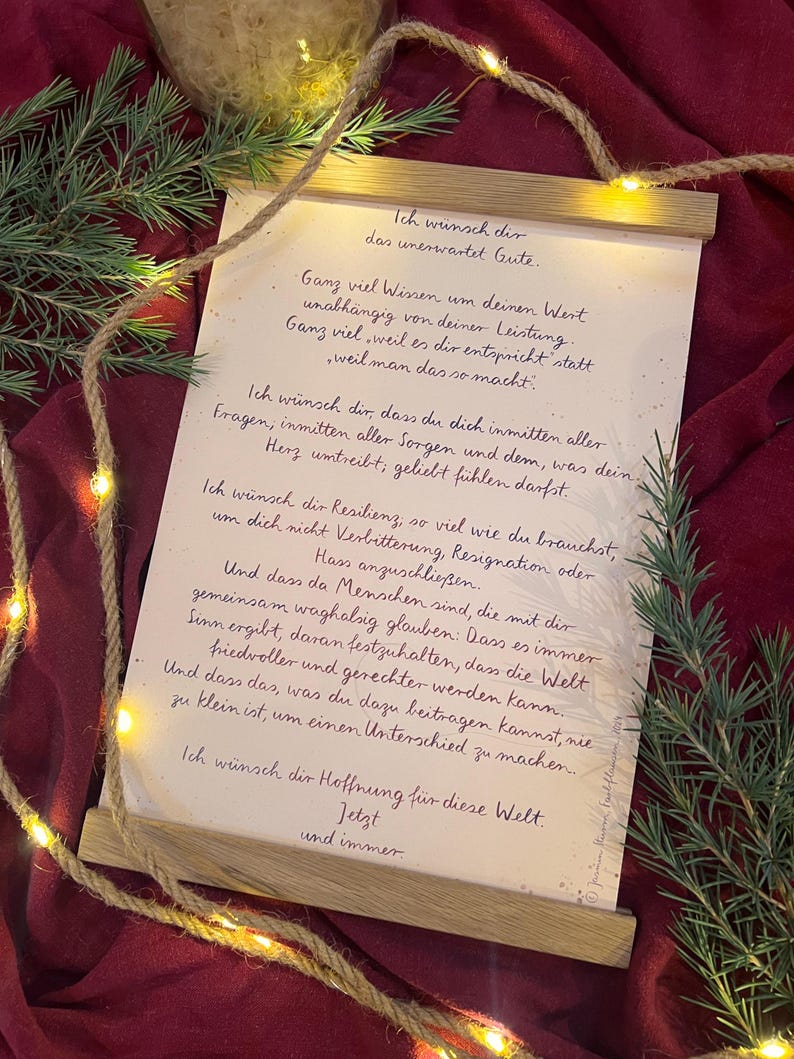 Ich wünsch dir
das unerwartet Gute.
Ganz viel Wissen um deinen Wert
unabhängig von deiner Leistung.
Ganz viel „weil es dir entspricht" statt
„weil man das so macht".
Ich wünsch dir, dass du dich inmitten aller
Fragen, inmitten aller Sorgen und dem, was dein
Herz umtreibt, geliebt fühlen darfst.
Ich wünsch dir Resilienz, so viel wie du brauchst,
um dich nicht Verbitterung, Resignation oder
Hass anzuschließen.
Und dass da Menschen sind, die mit dir
gemeinsam waghalsig glauben: Dass es immer
Sinn ergibt, daran festzuhalten, dass die Welt
friedvoller und gerechter werden kann.
Und dass das, was du dazu beitragen kannst, nie
zu klein ist, um einen Unterschied zu machen.
Ich wünsch dir Hoffnung für diese Welt.
Jetzt
und immer.
© Jasmin Sturm, Farbflausen 2024